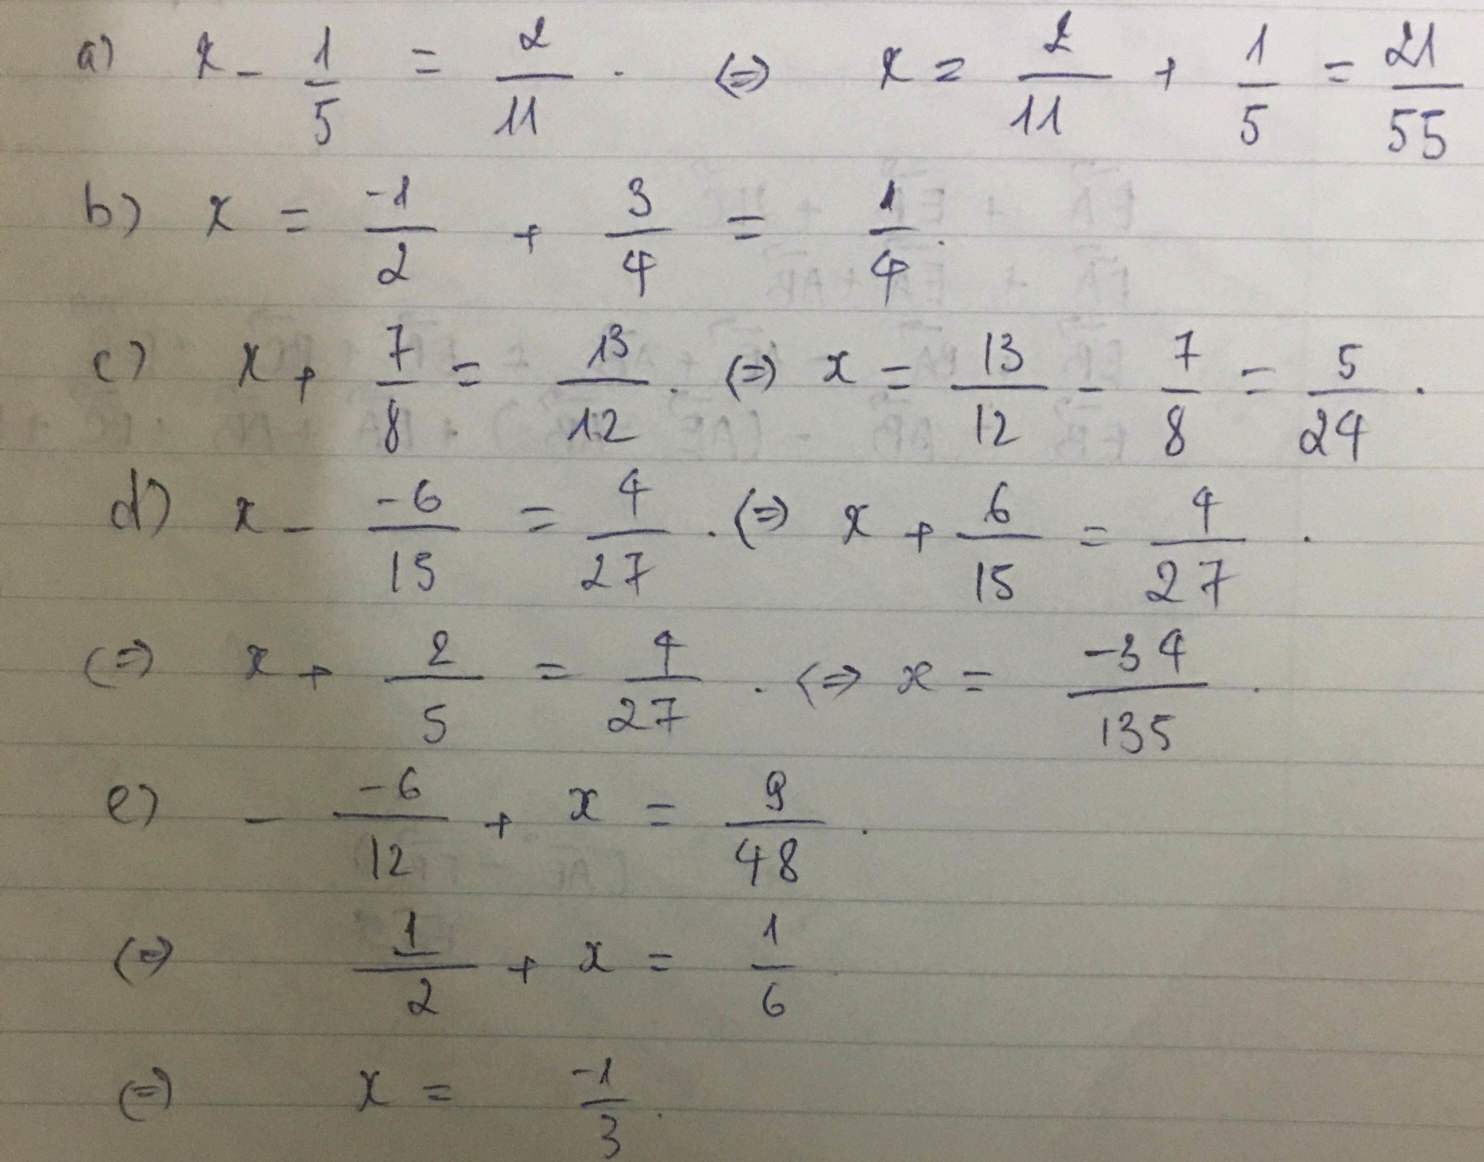 a) x - 1/5 = 2/11 . (=) x = 2/11 + 1/5 = 21/55
b) x = -1/2 + 3/4 = 1/4 .
c) x + 7/8 = 13/12 . (=) x = 13/12 - 7/8 = 5/24 .
d) x - -6/15 = 4/27 . (=) x + 6/15 = 4/27 .
(=) x + 2/5 = 4/27 . (=) x = -34/135 .
e) - -6/12 + x = 9/48 .
(=) 1/2 + x = 1/6
(=) x = -1/3 .